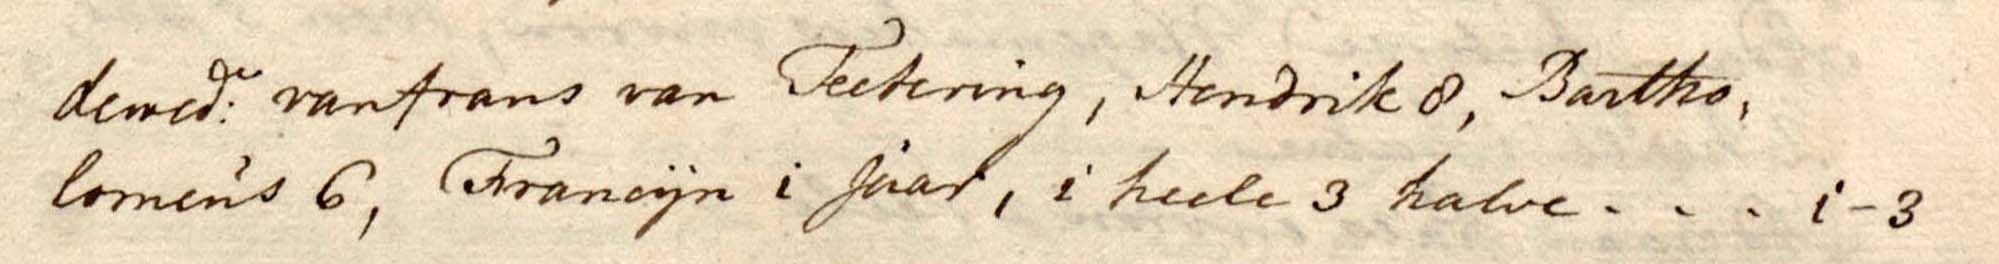 de wed.e van frans van Teetering, Hendrik 8, Bartho,
lomeús 6, Francijn i jaar, i heele 3 halve . . . i-3